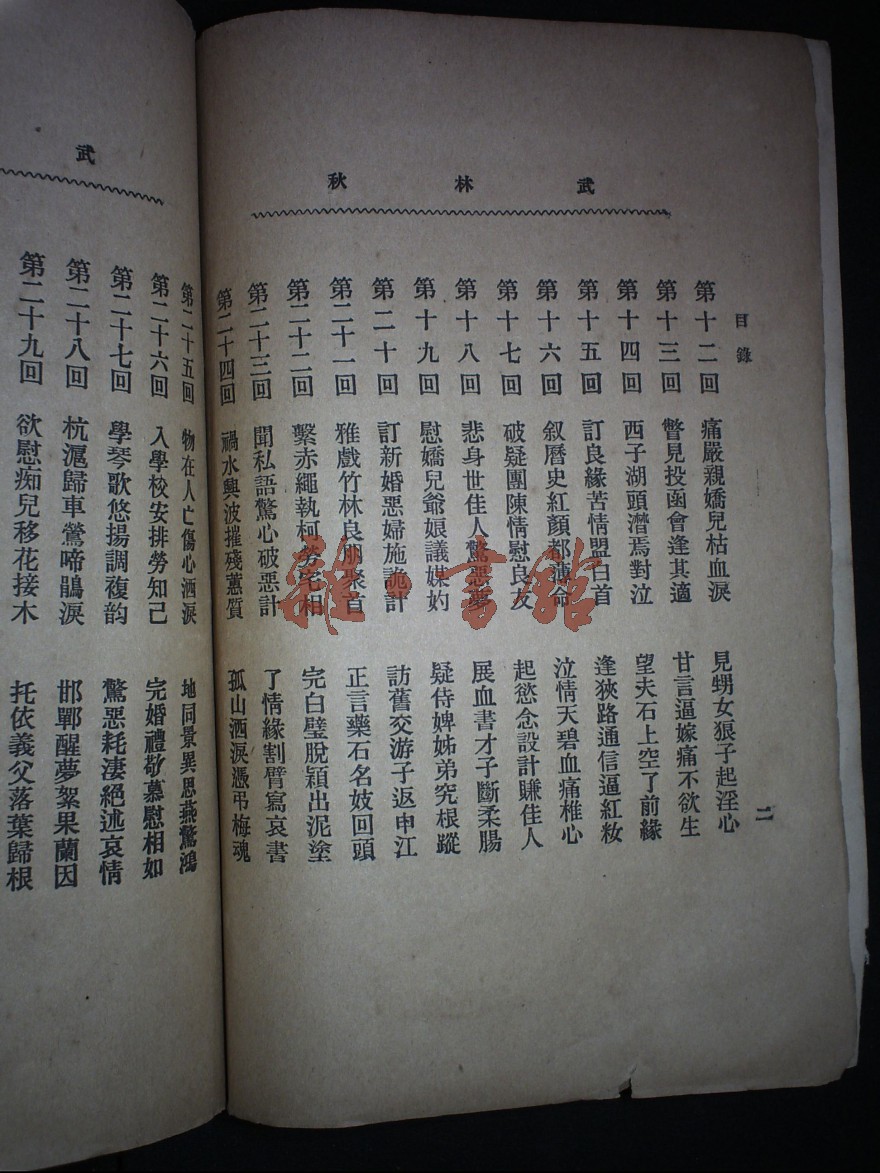 武林秋
目錄
第十二回 痛嚴親嬌兒枯血淚 見甥女狠子起淫心
第十三回 瞥見投函會逢其適 甘言逼嫁痛不欲生
第十四回 西子湖頭潸焉對泣 望夫石上空了前緣
第十五回 訂良緣苦情盟白首 逢狹路通信逼紅妝
第十六回 叙曆史紅顏都薄命 泣情天碧血痛椎心
第十七回 破疑團陳情慰良友 起慾念設計賺佳人
第十八回 悲身世佳人驚惡夢 展血書才子斷柔腸
第十九回 慰嬌兒爺娘議媒妁 疑侍婢姊弟究根蹤
第二十回 訂新婚惡婦施詭計 訪舊交游子返申江
第二十一回 雅戲竹林良朋聚首 正言藥石名妓回頭
第二十二回 繫赤繩執柯勞宅相 完白璧脫穎出泥塗
第二十三回 聞私語驚心破惡計 了情緣割臂寫哀書
第二十四回 禍水興波摧殘蕙質 孤山洒淚憑弔梅魂
二
武
第二十五回 物在人亡傷心洒淚 地同景異思燕驚鴻
第二十六回 入學校安排勞知己 完婚禮敬慕慰相如
第二十七回 學琴歌悠揚調複韵 驚惡耗淒絕述哀情
第二十八回 杭滬歸車鶯啼鵑淚 邯鄲醒夢絮果蘭因
第二十九回 欲慰痴兒移花接木 托依義父落葉歸根
雜·書館